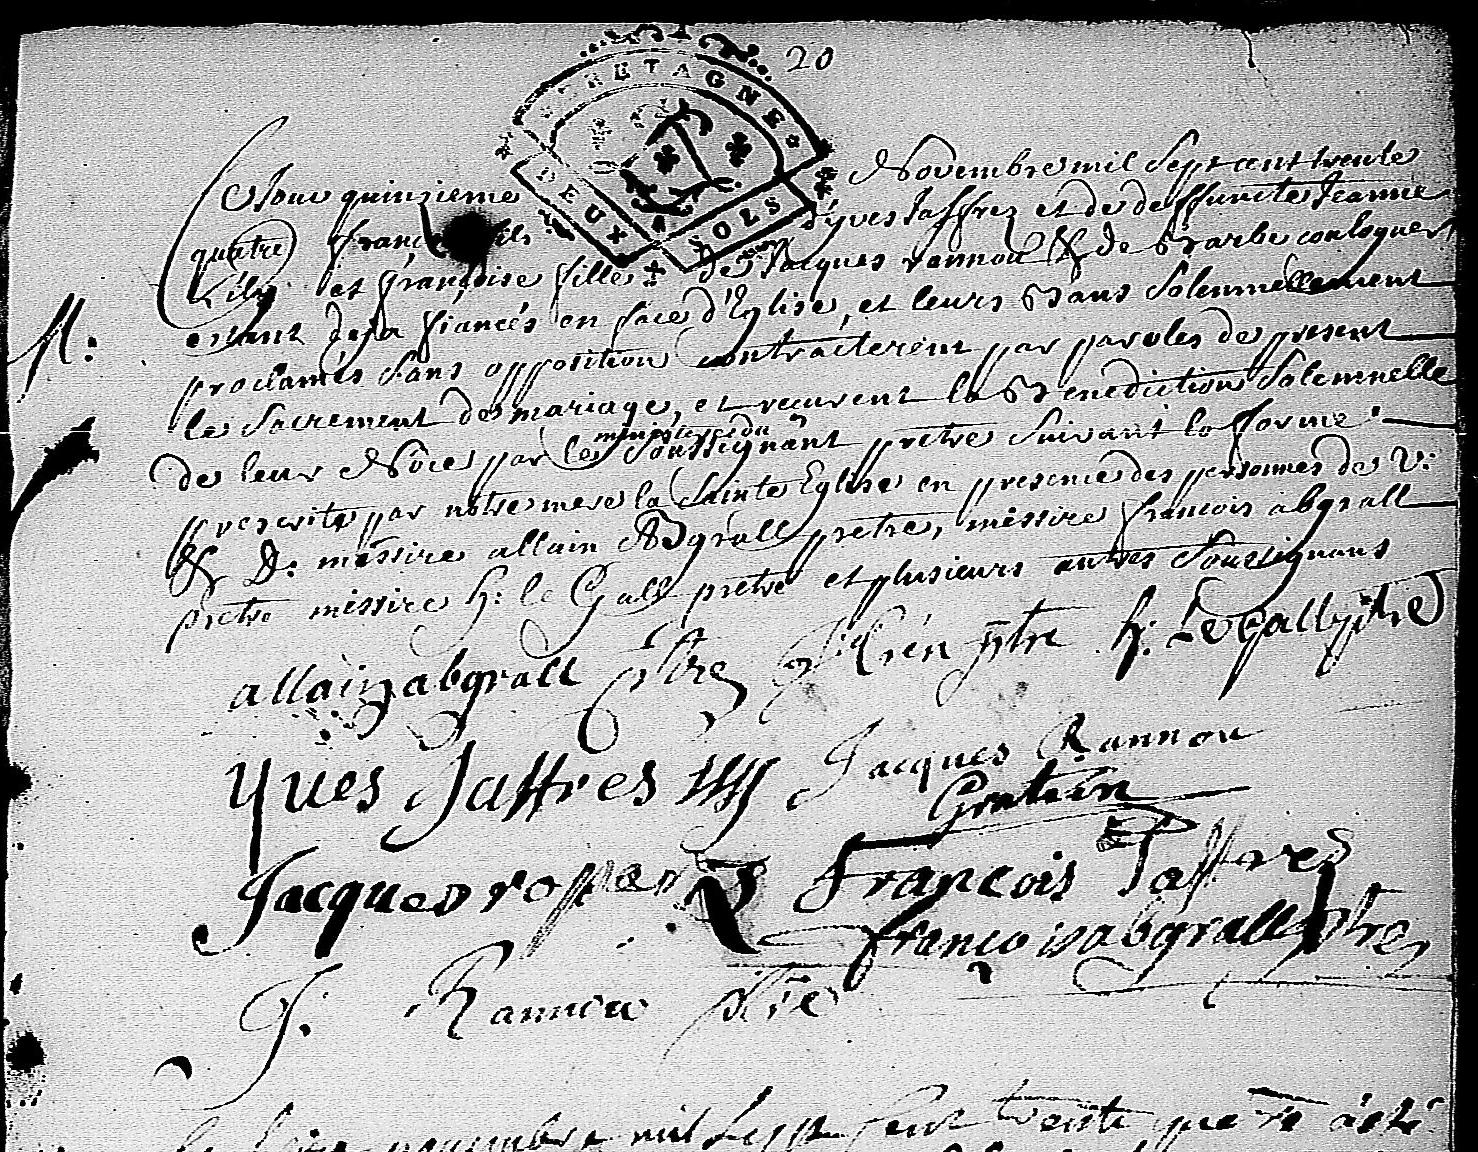 20
BRETAGNE
DEUX SOLS
Ce Jour quinzieme Novembre mil Sept cent trente
quatre françois fils d'yves Jaffrez et de deffuncte Jeanne
et françoise fille de Jacques rannou & de Barbe couloigner
estant deja fiancés en face d'Eglise, et leurs Bans Solemnellement
M:
proclamés Sans opposition contracterent par paroles de present
le Sacrement de mariage, et recurent la Benediction Solemnelle
de leur Nôce par le ministere du Soussignant prêtre Suivant la forme
prescrite par nôtre mere la Sainte Eglise en presence des personnes de V:
& D: messire allain Abgrall prêtre, messire françois abgrall
prêtre missire h: le Gall prêtre et plusieurs autres Soussignans
allain abgrall ptre ptre h: Le Gall ptre
yves Jaffres Jacques Rannou
Jacques roppars françois Jaffres
françois abgrall ptre
J. Rannou ptre
novembre mil Sept Cent trente quatre a esté